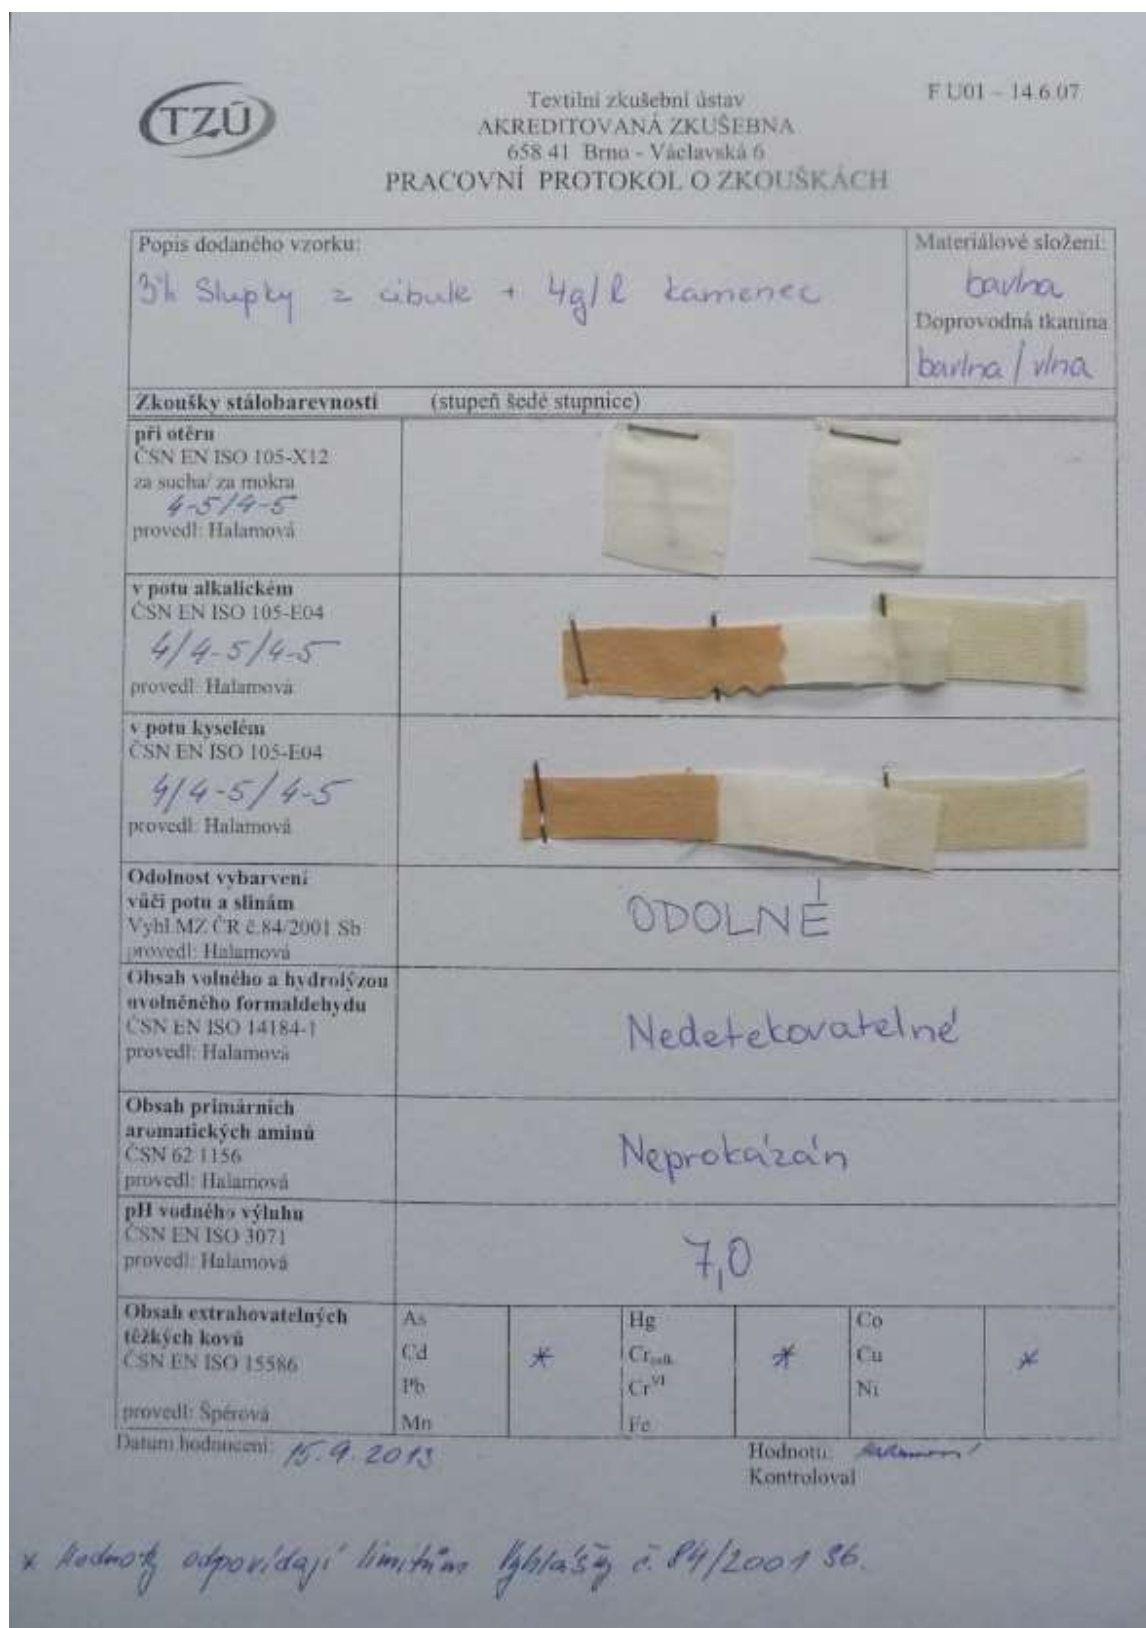 TZÚ
Textilní zkušební ústav
AKREDITOVANÁ ZKUŠEBNA
658 41 Brno - Václavská 6
PRACOVNÍ PROTOKOL O ZKOUŠKÁCH
F U01 – 14.6.07
Popis dodaného vzorku:
3% Slupky z cibule + 4g/l kamenec
Materiálové složení:
bavlna
Doprovodná tkanina
bavlna / vlna
Zkoušky stálobarevnosti (stupeň šedé stupnice)
při otěru
ČSN EN ISO 105-X12
za sucha/ za mokra
4-5/4-5
provedl: Halamová
v potu alkalickém
ČSN EN ISO 105-E04
4/4-5/4-5
provedl: Halamová
v potu kyselém
ČSN EN ISO 105-E04
4/4-5/4-5
provedl: Halamová
Odolnost vybarvení
vůči potu a slinám
Vyhl.MZ ČR č.84/2001 Sb
provedl: Halamová
ODOLNÉ
Obsah volného a hydrolýzou
uvolněného formaldehydu
ČSN EN ISO 14184-1
provedl: Halamová
Nedetekovatelné
Obsah primárních
aromatických aminů
ČSN 62 1156
provedl: Halamová
Neprokázán
pH vodného výluhu
ČSN EN ISO 3071
provedl: Halamová
7,0
Obsah extrahovatelných
těžkých kovů
ČSN EN ISO 15586
provedl: Špérová
As
Cd
Pb
Mn
*
Hg
Cr celk.
Cr VI
Fe
*
Co
Cu
Ni
*
Datum hodnocení: 15.9.2013
Hodnotil:
Kontroloval
* Hodnoty odpovídají limitům Vyhlášky č. 84/2001 Sb.